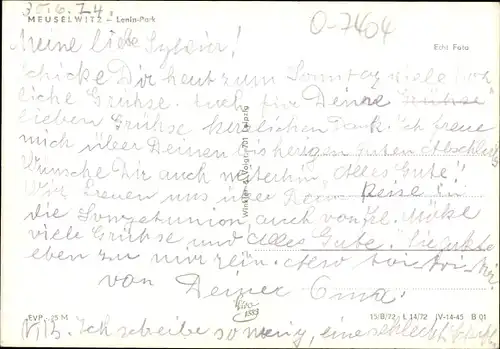 25.6.74.
MEUSELWITZ – Lenin-Park
0-7404
Meine liebe Sylvia!
Echt Foto
schicke Dir heut zum Sonntag viele herz
liche Grühse. Auch für Deine Grühse
lieben Grühse herzlichen Dank. Ich freue
mich über Deinen bisherigen guten Abschluß
Wünsche Dir auch weiterhin Alles Gute!
Wir freuen uns über Reise in
die Sowjetunion, auch von
viele Grühse und Alles Gute.
eben zu mir rein. Also
von Deiner Oma.
Winkler & Voigt, 701 Leipzig
EVP -,25 M
15/B/72 L 14/72 IV-14-45 B 01
Ich schreibe so wenig, eine schlecht